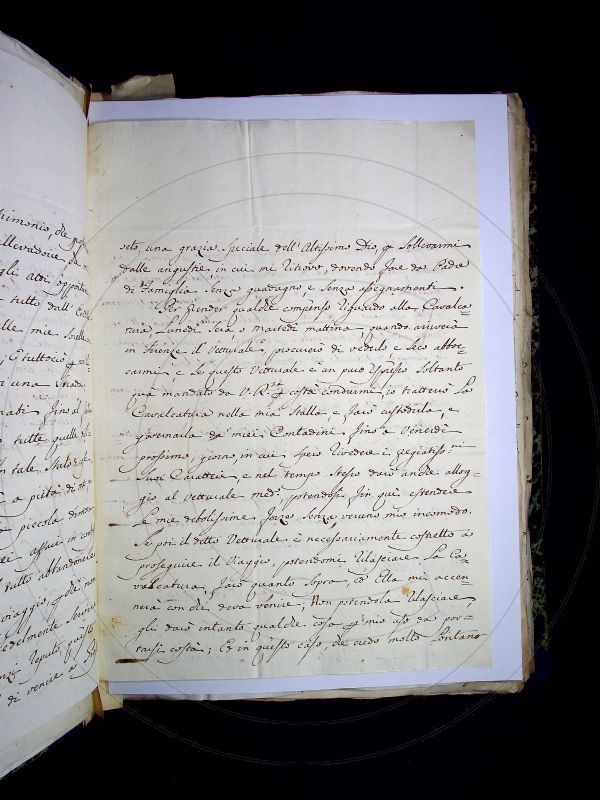 trimonio, che
allevadore da=
gli altri opportu
tutto dall'
alle mie Sorelle
È tuttociò
di una Strada
fino al
tutte quelle
in tale Stato
a pietà di
piccola
esser in
tutto abbandonare
viaggio, che non
fedelmente
di venire a
selo una grazia speciale dell'Altissimo Dio, ꝑ Sollevarmi
dalle angustie, in cui mi ritrovo, dovendo fare da Padre
di Famiglia senza guadagno, e senza assegnamenti.
Per prender qualche compenso riguardo alla Cavalca=
tura, Lunedì Sera, o martedì mattina, quando arriverà
in Firenze il Vetturale, procurerò di vederlo, e seco abboc=
carmi; e se questo Vetturale è un puro Espresso soltanto
quà mandato da V. R.ma ꝑ costà condurmi, io tratterrò la
Cavalcatura nella mia Stalla, e farò custodirla, e
governarla da' miei Contadini fino a Venerdì
prossimo, giorno, in cui spero rivedere i pregiatiss.mi
Suoi Caratteri, e nel tempo stesso darò anche allog=
gio al Vetturale med.o, potendosi fin quì estendere
le mie debolissime forze senza veruno mio incomodo.
Se poi il detto Vetturale è necessariamente costretto a
proseguire il Viaggio, potendomi rilasciare la Ca=
valcatura, farò quanto sopra, ed Ella mi accen=
nerà con chi deva venire; Non potendola rilasciare,
gli darò intanto qualche cosa ꝑ mio uso da por=
tarsi costà; Ed in questo caso, che credo molto lontano